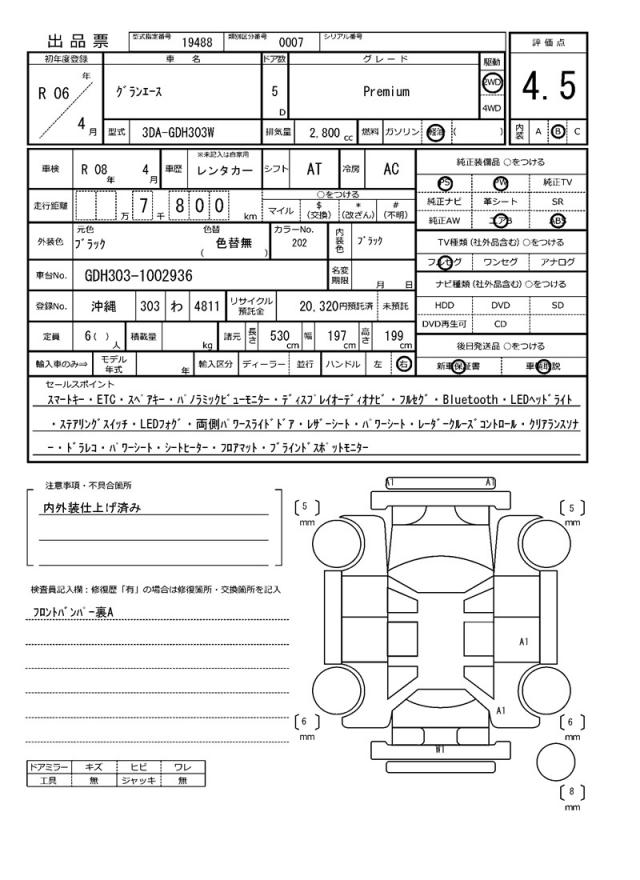 出品票 型式指定番号 19488 類別区分番号 0007 シリアル番号
評価点
4.5
初年度登録 車名 ドア数 グレード 駆動
R 06 年 4 月 グランエース 5 D Premium 2WD 4WD
型式 3DA-GDH303W 排気量 2,800 cc 燃料 ガソリン 軽油 ( ) 内装 A B C
車検 R 08 年 4 月 車歴 ※未記入は自家用 レンタカー シフト AT 冷房 AC
走行距離 万 7 千 8 0 0 km ○をつける マイル $ (交換) * (改ざん) # (不明)
外装色 元色 ブラック 色替 ( 色替無 ) カラーNo. 202 内装色 ブラック
車台No. GDH303-1002936 名変期限 月 日
登録No. 沖縄 303 わ 4811 リサイクル預託金 20,320円預託済 未預託
定員 6( ) 人 積載量 kg 諸元 長さ 530 cm 幅 197 cm 高さ 199 cm
輸入車のみ⇒ モデル年式 年 輸入区分 ディーラー ・ 並行 ハンドル 左 ・ 右
純正装備品 ○をつける
PS PW 純正TV
純正ナビ 革シート SR
純正AW エアB ABS
TV種類 (社外品含む) ○をつける
フルセグ ワンセグ アナログ
ナビ種類 (社外品含む) ○をつける
HDD DVD SD
DVD再生可 CD
後日発送品 ○をつける
新車保証書 車輌取説
セールスポイント
スマートキー・ETC・スペアキー・パノラミックビューモニター・ディスプレイオーディオナビ・フルセグ・Bluetooth・LEDヘッドライト
・ステアリングスイッチ・LEDフォグ・両側パワースライドドア・レザーシート・パワーシート・レーダークルーズコントロール・クリアランスソナ
ー・ドラレコ・パワーシート・シートヒーター・フロアマット・ブラインドスポットモニター
注意事項・不具合箇所
内外装仕上げ済み
検査員記入欄：修復歴「有」の場合は修復箇所・交換箇所を記入
フロントバンパー裏A
ドアミラー キズ ヒビ ワレ
工具 無 ジャッキ 無
A1 A1
5 mm
5 mm
A1
A1
6 mm
6 mm
W1
8 mm